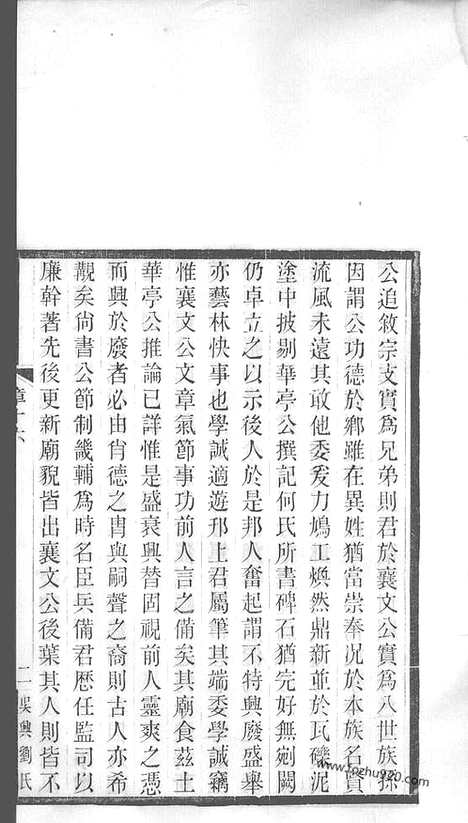 公追敘宗支實為兄弟則君於襄文公實為八世族孫
因謂公功德於鄉雖在異姓猶當崇奉况於本族名賢
流風未遠其敢他委爰力鳩工煥然鼎新並於瓦礫泥
塗中披剔華亭公撰記何氏所書碑石猶完好無剜闕
仍卓立之以示後人於是邦人奮起謂不特興廢盛舉
亦藝林快事也學誠適遊邗上君屬筆其端委學誠竊
惟襄文公文章氣節事功前人言之備矣其廟食茲土
華亭公推論已詳惟是盛衰興替固視前人靈爽之憑
而興於廢者必由肖德之冑與嗣聲之裔則古人亦希
覯矣尙書公節制畿輔為時名臣兵備君歷任監司以
廉幹著先後更新廟貌皆出襄文公後葉其人則皆不
章十六
二
吳興劉氏
www.fozhu920.com